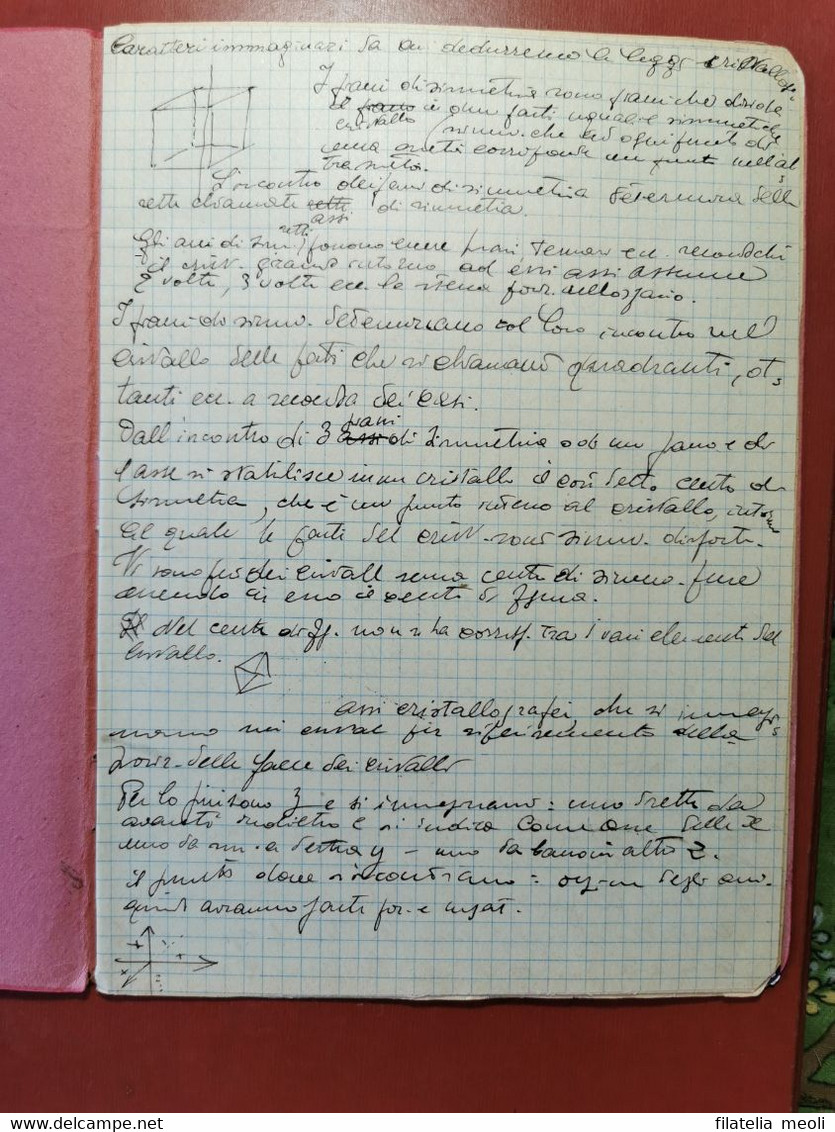 Caratteri immaginari da cui dedurremo le leggi cristallogr.
I piani di simmetria sono piani che divide
il piano in due parti uguali e simmetriche
cristallo (simm. che ad ogni punto di
una metà corrisponde un punto nell'al
tra metà.
L'incontro dei piani di simmetria determina delle
rette chiamate retti di simmetria.
assi
retti
Gli assi di simm. possono essere binari, ternari ecc. secondochi
il crist. girando intorno ad essi assi assume
2 volte, 3 volte ecc. la stessa posiz. nello spazio.
I piani di simm. determinano col loro incontro nel
cristallo delle parti che si chiamano quadranti, ot
tanti ecc. a seconda dei casi.
piani
Dall'incontro di 3 assi di simmetria o di un piano e di
1 asse si stabilisce in un cristallo il così detto centro di
simmetria, che è un punto interno al cristallo, intorno
al quale le parti del crist. sono simm. disposte.
Vi sono poi dei cristall senza centro di simm. pure
avendo in essi il centro di figura.
Nel centro di fig. non si ha corrisp. tra i vari elementi del
cristallo.
assi cristallografici, che si immagi
nano nei cristal per riferimento della
posiz. delle facce dei cristalli
Per lo più sono 3 e si immaginano: uno diretto da
avanti indietro e si indica come asse delle x
uno da sin. a destra y – uno da basso in alto z.
il punto dove si incontrano = origine degli assi.
quindi avranno parti pos. e negat.
+
+
x
filatelia meoli